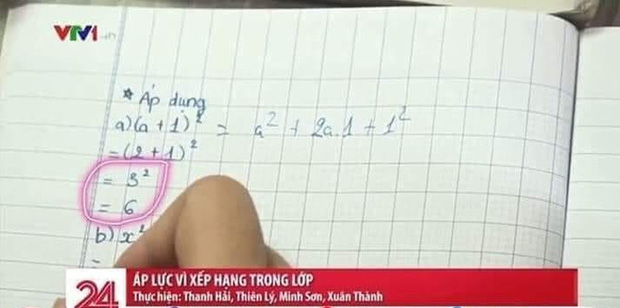 VTV1
* Áp dụng
a) (a + 1)² = a² + 2a.1 + 1²
= (2 + 1)²
= 3²
= 6
b) x²
=
24
ÁP LỰC VÌ XẾP HẠNG TRONG LỚP
Thực hiện: Thanh Hải, Thiên Lý, Minh Sơn, Xuân Thành